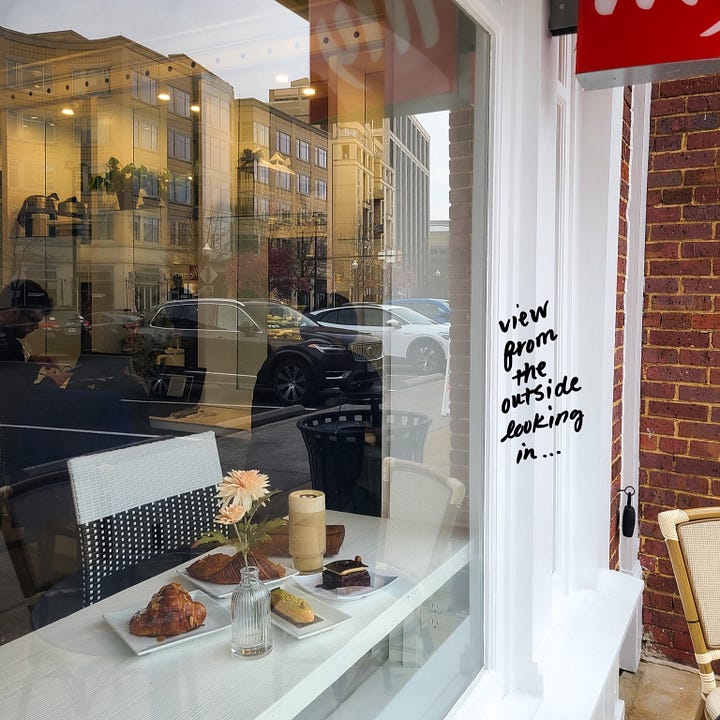 view
from
the
outside
looking
in...